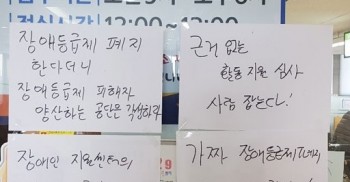 12:00~13:00
장애등급제 폐지
한다더니
장애등급제 피해자
양산하는 공단은 각성하라
근거 없는
활동지원 심사
사람 잡는다!
장애인 지원센터의
가짜 장애등급제 폐지